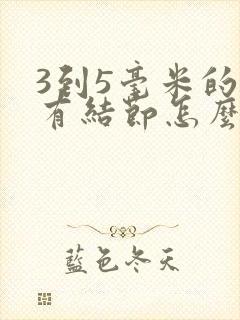 3到5毫米的
有結節怎麼
藍色冬天